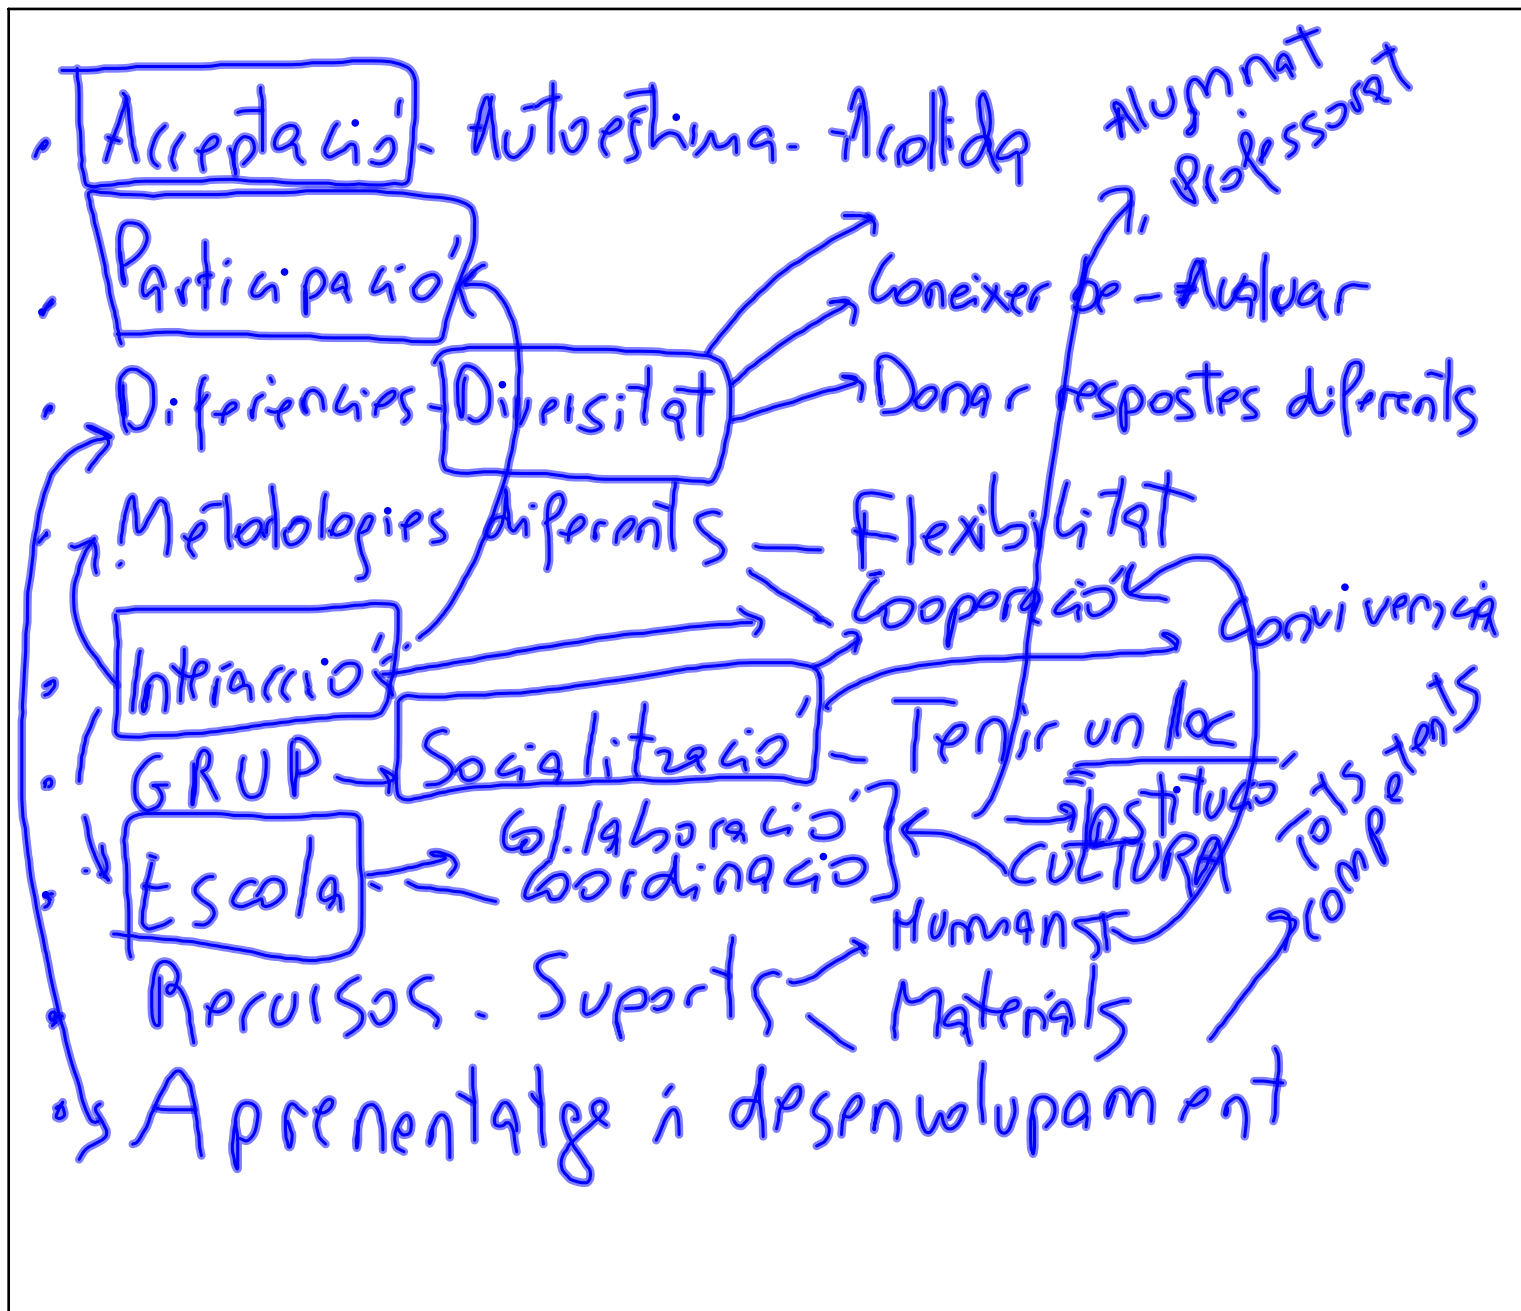 Acceptació - Autoestima - Acollida
Alumnat
Professorat
Participació
Coneixer be - Avaluar
Diferències - Diversitat
Donar respostes diferents
Metodologies diferents — Flexibilitat
Cooperació
Convivencia
Interacció
GRUP → Socialització - Tenir un loc
Escola
Col.laboració
Coordinació
Institució
CULTURA
Tots
competents
Recursos - Suports
Humans
Materials
Aprenentatge i desenvolupament